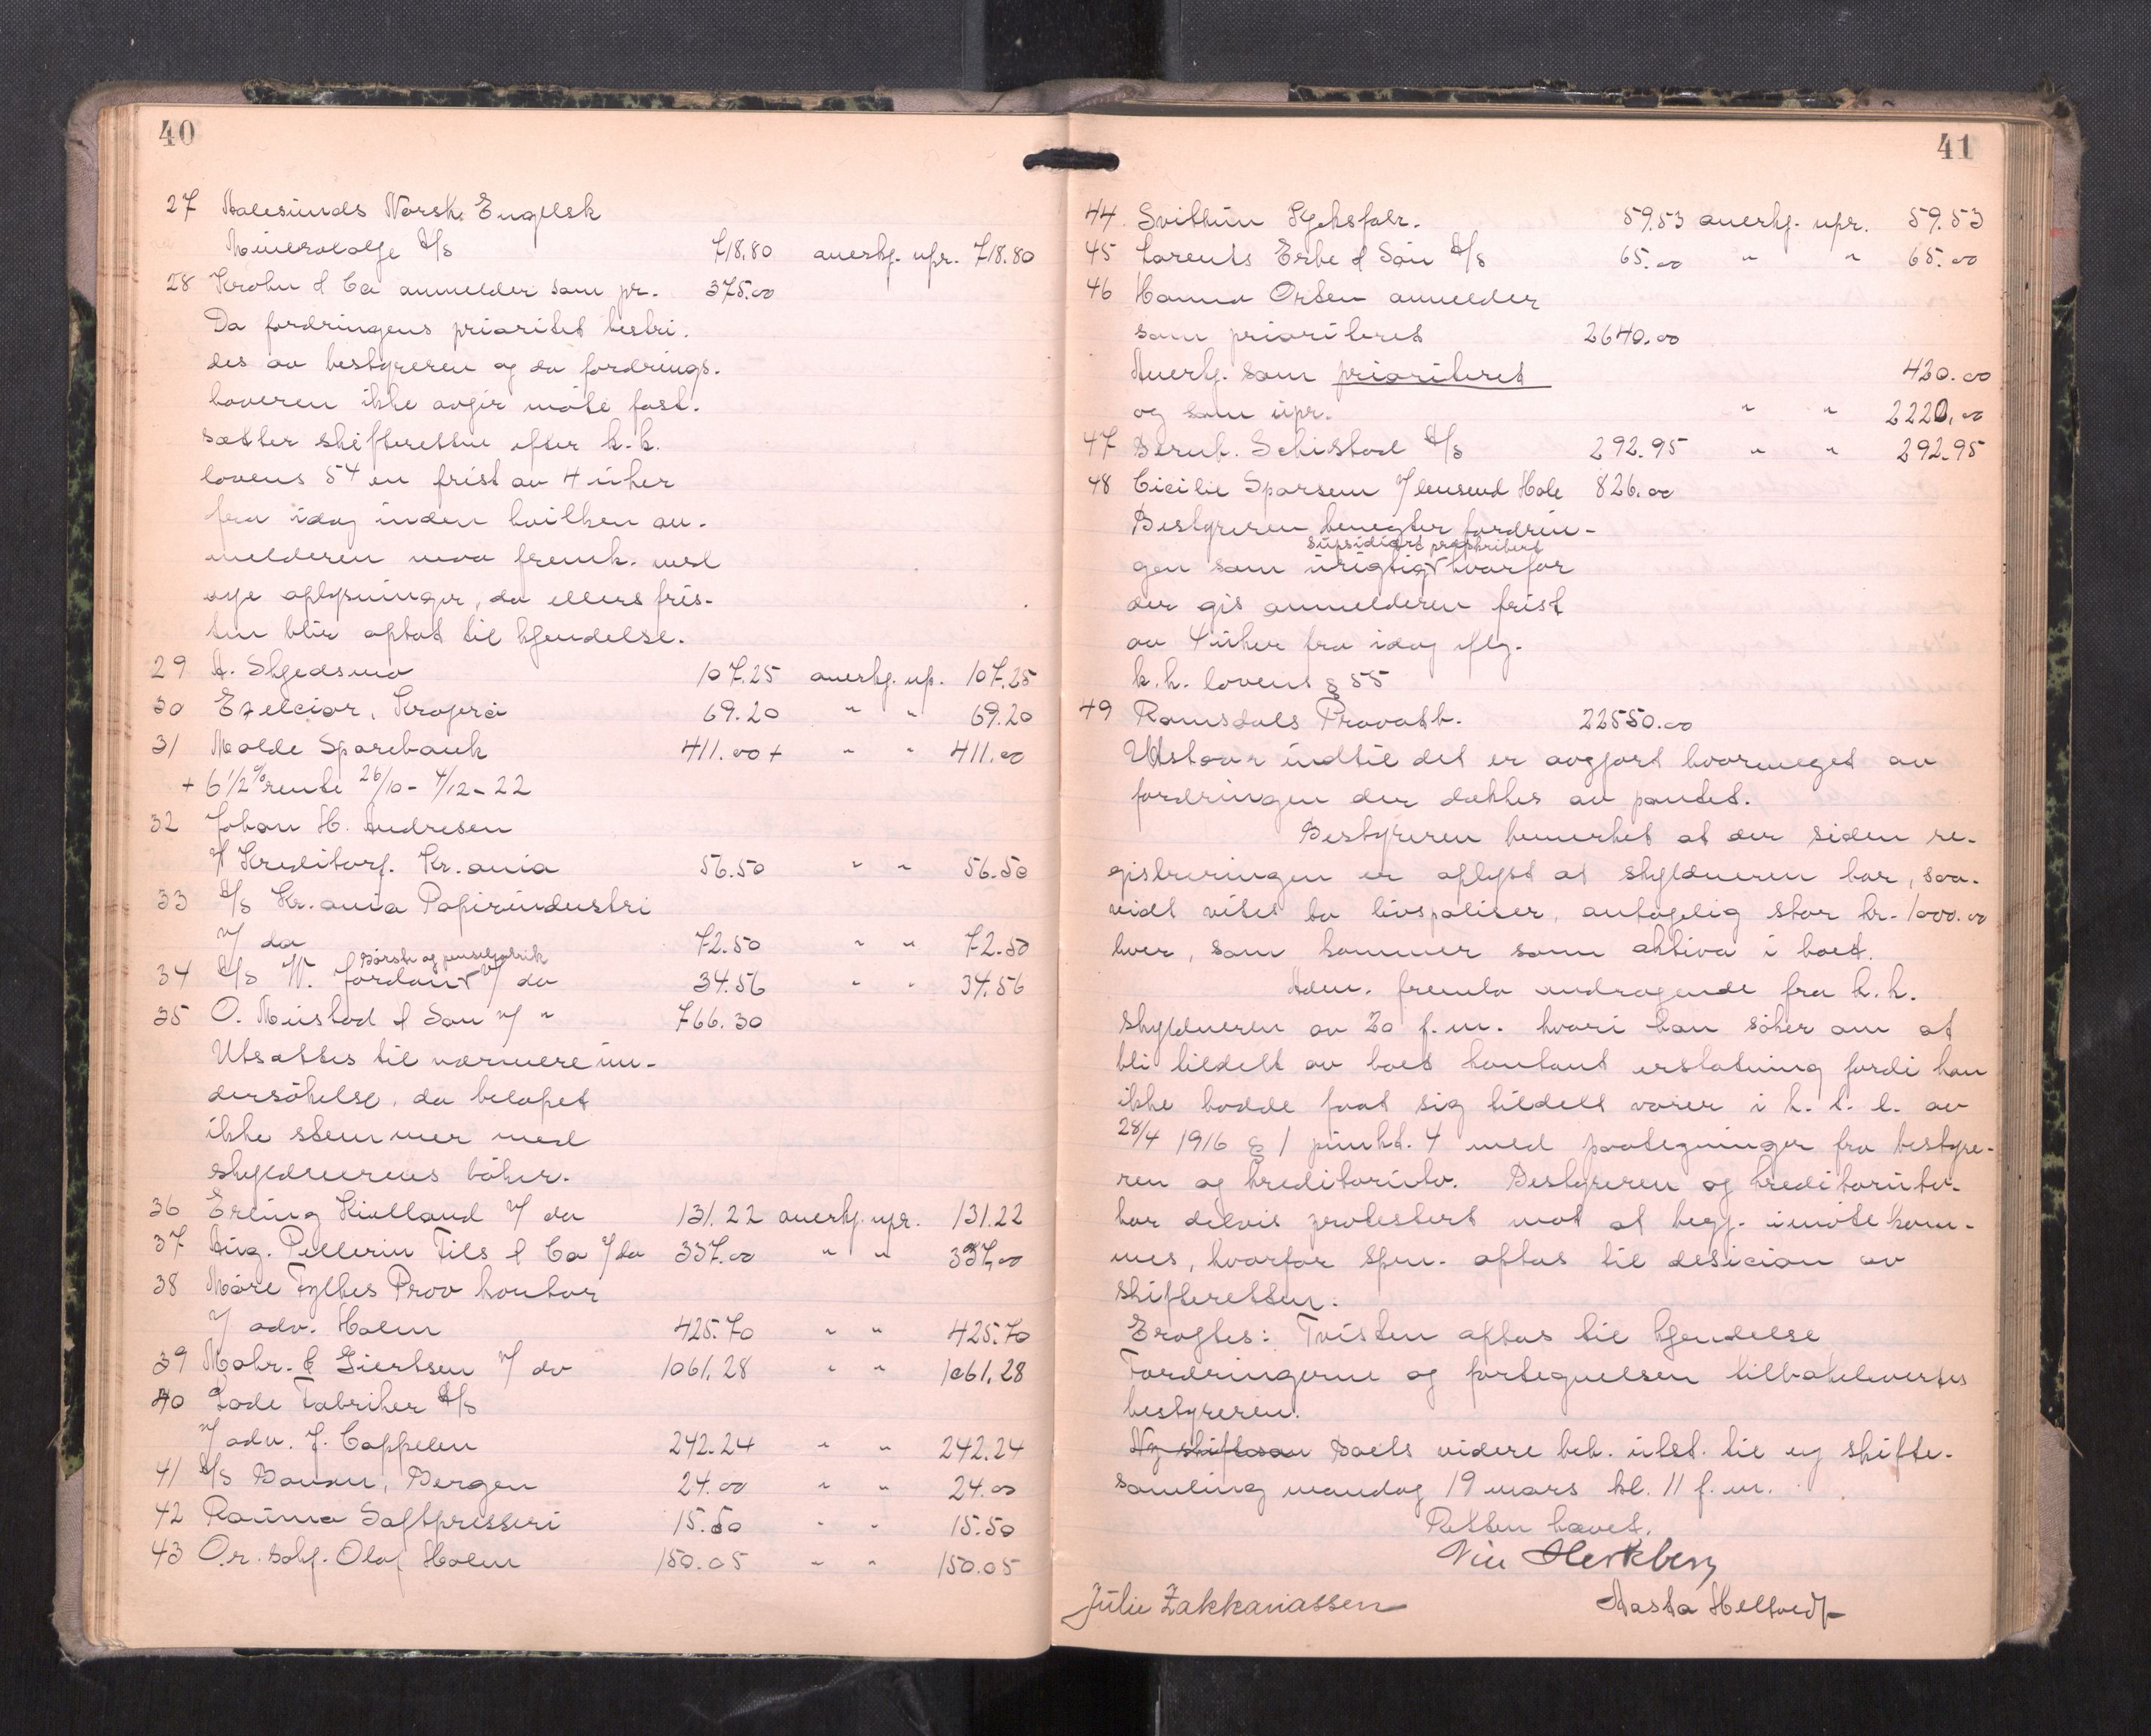 40
27 Aalesunds Norsk Engelsk
Mineralolje A/S 718.80 anerkj. upr. 718.80
28 Krohn & Co anmelder som pr. 375.00
Da fordringens prioritet bestri-
des av bestyreren og da fordrings-
haveren ikke avgir møte fast-
sætter skifteretten efter k.k.
lovens 54 en frist av 4 uker
fra idag inden hvilken an-
melderen maa fremk. med
nye oplysninger, da ellers tvis-
ten blir optat til kjendelse.
29 A. Skjedsmo 107.25 anerkj. up. 107.25
30 Exelcior, Kragerö 69.20 " " 69.20
31 Molde Sparebank 411.00 + " " 411.00
+ 6 1/2 % rente 26/10 - 4/12 - 22
32 Johan H. Andresen
v/ Kreditorf. Kr.ania 56.50 " " 56.50
33 A/S Kr.ania Papirindustri
v/ do 72.50 " " 72.50
Börste og penselfabrik
34 A/S W. Jordan v/ do 34.56 " " 34.56
35 O. Mustad & Søn v/ " 766.30
Utsattes til nærmere un-
dersökelse, da belöpet
ikke stemmer med
skyldnerens böker.
36 Erling Kielland v/ do 131.22 anerkj. upr. 131.22
37 Aug. Pellerin Fils & Co v/ do 337.00 " " 337.00
38 Möre Fylkes Prov kontor
v/ adv. Holm 425.70 " " 425.70
39 Mohr & Giertsen v/ do 1061.28 " " 1061.28
40 Lade Fabriker A/S
v/ adv. J. Cappelen 242.24 " " 242.24
41 A/S Bergen 24.00 " " 24.00
42 Rauma Saftpresseri 15.50 " " 15.50
43 O.r. sakf. Olaf Holm 150.05 " " 150.05
41
44 Svithun Skjeksfabr. 59.53 anerkj. upr. 59.53
45 Lorents Erbe & Sön A/S 65.00 " " 65.00
46 Hanna Orten anmelder
som prioriteret 2640.00
Anerkj. som prioriteret 420.00
og som upr. " " 2220.00
47 Bernh. Schistad A/S 292.95 " " 292.95
48 Cicilie Sparsem v/ lensmd Hole 826.00
Bestyreren benegter fordrin-
supsidiært præskribert
gen som urigtig hvorfor
der gis anmelderen frist
av 4 uker fra idag iflg.
k.k. lovens § 55
49 Romsdals Privatb. 22550.00
Utstaar indtil det er avgjort hvormeget av
fordringen der dækkes av pantet.
Bestyreren bemerket at der siden re-
gistreringen er oplyst at skyldneren har, saa-
vidt vites to livspoliser, antagelig stor kr. 1000.00
hver, som kommer som aktiva i boet.
Adm. fremla andragende fra k.k.
skyldneren av 20 f.m. hvori han söker om at
bli tildelt av boet kontant erstatning fordi han
ikke hadde faat sig tildelt varer i h. t. l. av
28/4 1916 § 1 punkt. 4 med paategninger fra bestyre-
ren og kreditorutv. Bestyreren og kreditorutv.
har delvis protestert mot at begj. imötekom-
mes, hvorfor spm. optas til desicion av
skifteretten.
Eragtes: Tvisten optas til kjendelse
Fordringerne og fortegnelsen tilbakelevertes
bestyreren.
Ny skiftesam Boets videre beh. utst. til ny skifte-
samling mandag 19 mars kl. 11 f.m.
Retten hævet.
Herkberg
Julie Zakkariassen Aasta Helltvedt